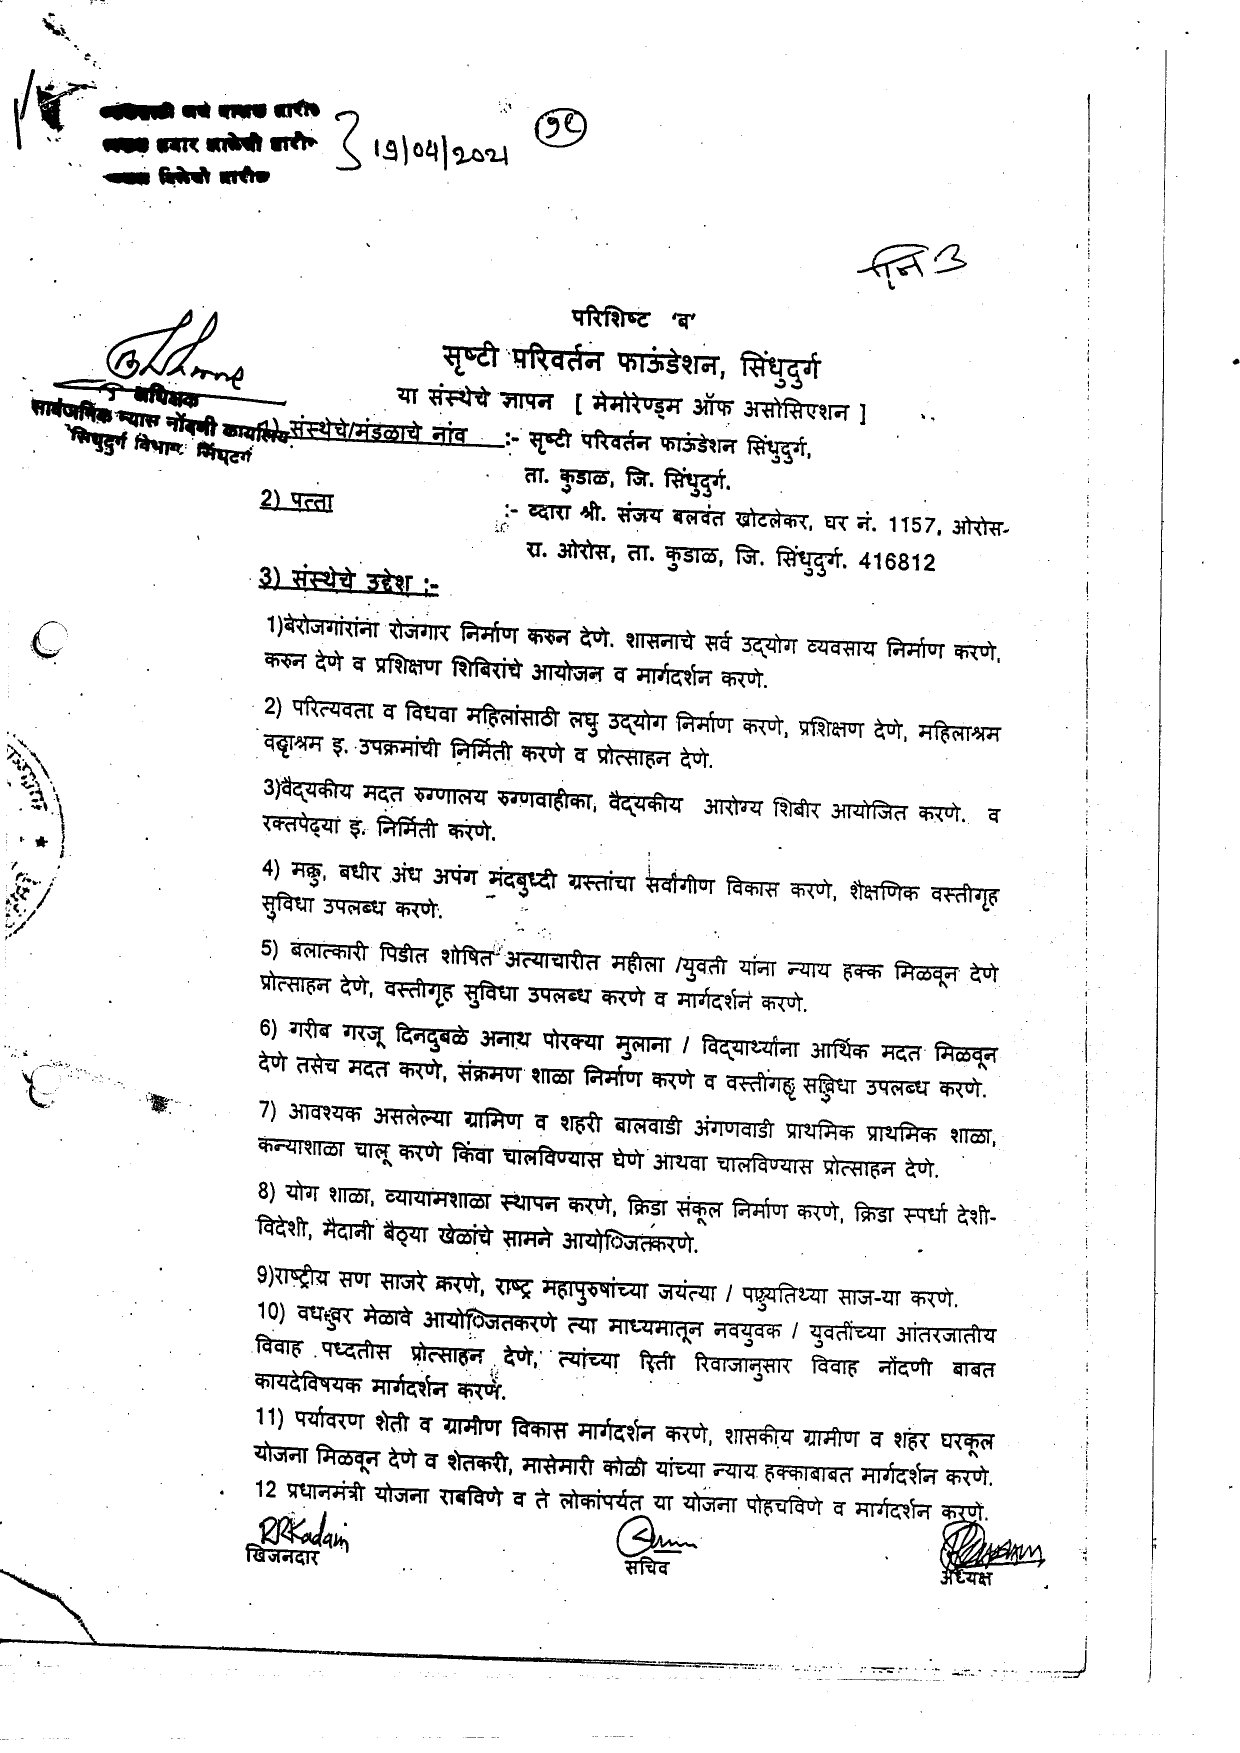 19/04/2021
परिशिष्ट 'ब'
सृष्टी परिवर्तन फाऊंडेशन, सिंधुदुर्ग
या संस्थेचे ज्ञापन [ मेमोरेण्ड्म ऑफ असोसिएशन ]
अधिक्षक
सार्वजनिक न्यास नोंदणी कार्यालय
सिंधुदुर्ग विभाग सिंधुदुर्ग
1) संस्थेचे/मंडळाचे नांव :- सृष्टी परिवर्तन फाऊंडेशन सिंधुदुर्ग,
ता. कुडाळ, जि. सिंधुदुर्ग.
2) पत्ता :- व्दारा श्री. संजय बलवंत खोटलेकर, घर नं. 1157, ओरोस-
रा. ओरोस, ता. कुडाळ, जि. सिंधुदुर्ग. 416812
3) संस्थेचे उद्देश :-
1)बेरोजगारांना रोजगार निर्माण करुन देणे. शासनाचे सर्व उद्‌योग व्यवसाय निर्माण करणे,
करुन देणे व प्रशिक्षण शिबिरांचे आयोजन व मार्गदर्शन करणे.
2) परित्यक्ता व विधवा महिलांसाठी लघु उद्‌योग निर्माण करणे, प्रशिक्षण देणे, महिलाश्रम
इ. उपक्रमांची निर्मिती करणे व प्रोत्साहन देणे.
3)वैद्‌यकीय मदत रुग्णालय रुग्णवाहीका, वैद्‌यकीय आरोग्य शिबीर आयोजित करणे. व
रक्तपेढ्यां इ. निर्मिती करणे.
4) बधीर अंध अपंग मंदबुध्दी ग्रस्तांचा सर्वांगीण विकास करणे, शैक्षणिक वस्तीगृह
सुविधा उपलब्ध करणे.
5) बलात्कारी पिडीत शोषित अत्याचारीत महीला /युवती यांना न्याय हक्क मिळवून देणे
प्रोत्साहन देणे, वस्तीगृह सुविधा उपलब्ध करणे व मार्गदर्शन करणे.
6) गरीब गरजू दिनदुबळे अनाथ पोरक्या मुलाना / विद्‌यार्थ्यांना आर्थिक मदत मिळवून
देणे तसेच मदत करणे, संक्रमण शाळा निर्माण करणे व उपलब्ध करणे.
7) आवश्यक असलेल्या ग्रामिण व शहरी बालवाडी अंगणवाडी प्राथमिक प्राथमिक शाळा,
कन्याशाळा चालू करणे किंवा चालविण्यास घेणे अथवा चालविण्यास प्रोत्साहन देणे.
8) योग शाळा, व्यायामशाळा स्थापन करणे, क्रिडा संकूल निर्माण करणे, क्रिडा स्पर्धा देशी-
विदेशी, मैदानी बैठ्या खेळांचे सामने आयो◌िजतकरणे.
9)राष्ट्रीय सण साजरे करणे, राष्ट्र महापुरुषांच्या जयंत्या / साज-या करणे.
10) मेळावे आयो◌िजतकरणे त्या माध्यमातून नवयुवक / युवतींच्या आंतरजातीय
विवाह पध्दतीस प्रोत्साहन देणे, त्यांच्या रिती रिवाजानुसार विवाह नोंदणी बाबत
कायदेविषयक मार्गदर्शन करणे.
11) पर्यावरण शेती व ग्रामीण विकास मार्गदर्शन करणे, शासकीय ग्रामीण व शहर घरकूल
योजना मिळवून देणे व शेतकरी, मासेमारी कोळी यांच्या न्याय हक्काबाबत मार्गदर्शन करणे.
12 प्रधानमंत्री योजना राबविणे व ते लोकांपर्यत या योजना पोहचविणे व मार्गदर्शन करणे.
RRKadam
खजिनदार
सचिव
अध्यक्ष